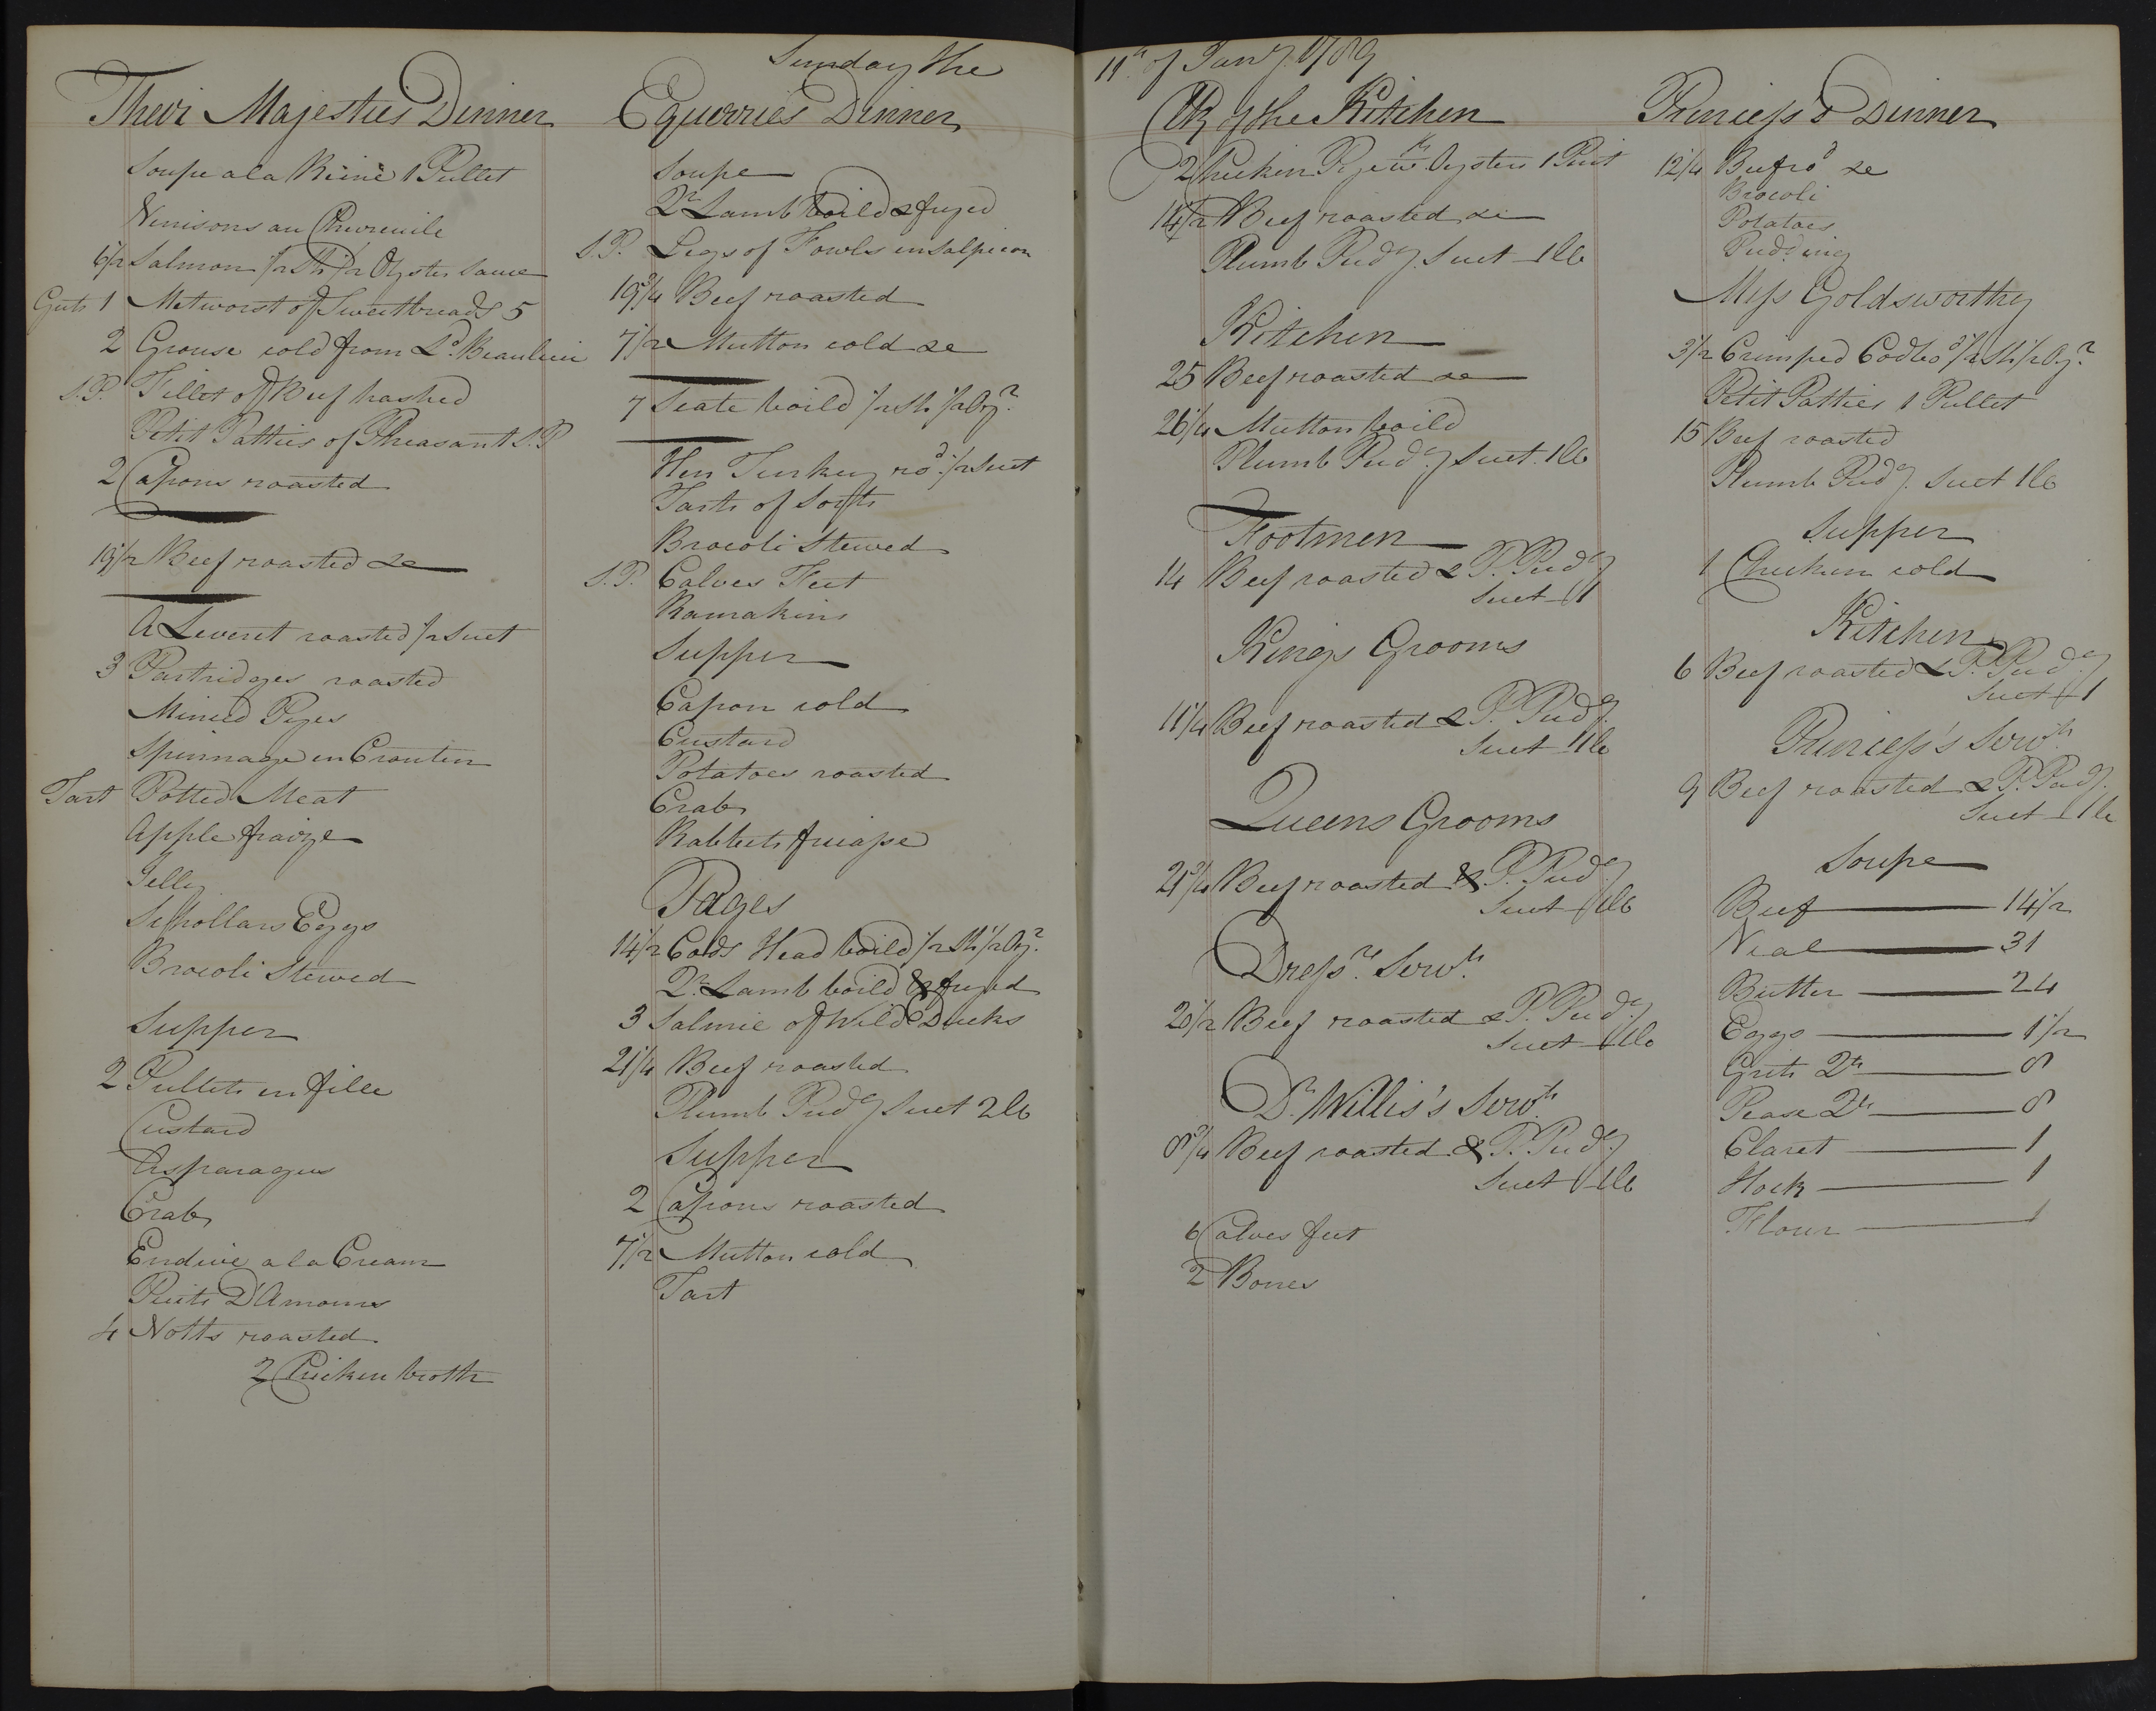 Sunday the
Their Majesties Dinner
Soupe a la Reine 1 Pullet
Venisons au Chevreuile
6 1/2 Salmon 1/2 Sh: 1/2 Oyster Sauce
Guts 1 Metworst of Sweetbreads 5
2 Grouse cold from Ld. Beaulieu
S.P. Fillet of Beef hashed
Petit Patties of Pheasant S.P
2 Capons roasted
19 1/2 Beef roasted &c
A Leveret roasted 1/2 Suet
3 Partridges roasted
Minced Pyes
Spinnage en Croutin
Tart Potted Meat
Apple fraize
Jelly
Schollars Eggs
Brocoli Stewed
Supper
2 Pullets en fille
Custard
Asparagus
Crab
Endive a la Cream
Puits D'Amours
4 Notts roasted
2 Chicken broth
Equerries Dinner
Soupe
Qr. Lamb boild & fryed
S.P. Legs of Fowls en Salpicon
19 3/4 Beef roasted
7 1/2 Mutton cold &c
7 Scate boild 1/2 Sh: 1/2 Oyr.
Hen Turkey rod. 1/2 Suet
Tarts of Sorts
Brocoli Stewed
S.P. Calves Feet
Ramakins
Supper
Capon cold
Custard
Potatoes roasted
Crab
Rabbets fricasse
Pages
14 1/2 Cods Head boild 1/2 Sh: 1/2 Oyr.
Qr. Lamb boild & fryed
3 Salmie of Wild Ducks
21 1/4 Beef roasted
Plumb Pudg. Suet 2 lb
Supper
2 Capons roasted
7 1/2 Mutton cold
Tart
11th. of Jany. 1789
Clk of the Kitchen
2 Chicken Pye wth. Oysters 1 Pint
14 1/2 Beef roasted &c
Plumb Pudg. Suet 1 lb
Kitchen
25 Beef roasted &c
26 1/4 Mutton boild
Plumb Pudg. Suet 1 lb
Footmen
14 Beef roasted & P. Pudg.
Suet 1
Kings Grooms
11 1/4 Beef roasted & P. Pudg.
Suet 1 lb
Queens Grooms
21 3/4 Beef roasted & P. Pudg.
Suet 1 lb
Dressrs. Servts.
20 1/2 Beef roasted & P. Pudg.
Suet 1 lb
Dr. Willis's Servts.
8 3/4 Beef roasted & P. Pudg.
Suet 1 lb
6 Calves feet
2 Bones
Princess's Dinner
12 1/4 Beef rod. &c
Brocoli
Potatoes
Pudding
Miss Goldsworthy
3 1/2 Crimped Cod bod. 1/2 Sh: 1/2 Oyr.
Petit Patties 1 Pullet
15 Beef roasted
Plumb Pudg. Suet 1 lb
Supper
1 Chicken cold
Kitchen
6 Beef roasted & P. Pudg.
Suet 1
Princess's Servts.
9 Beef roasted & P. Pudg.
Suet 1 lb
Soupe
Beef 14 1/2
Veal 31
Butter 24
Eggs 1 1/2
Grits Qts 8
Pease Qts 8
Claret 1
Hock 1
Flour 1